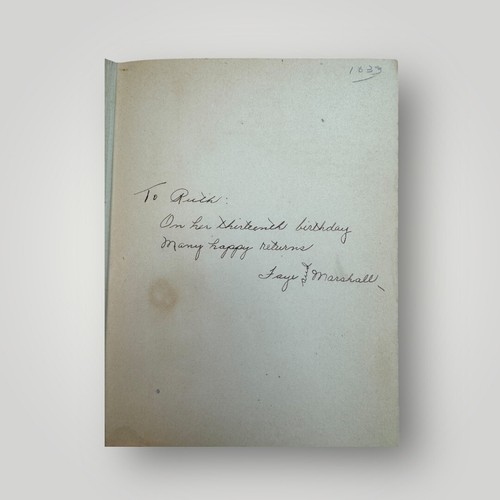 1033
To Ruth:
On her thirteenth birthday
Many happy returns
Faye & Marshall